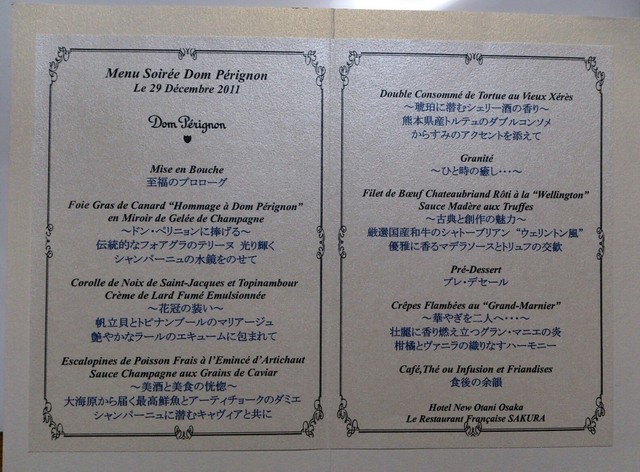 Menu Soirée Dom Pérignon
Le 29 Décembre 2011
Dom Pérignon
Mise en Bouche
至福のプロローグ
Foie Gras de Canard "Hommage à Dom Pérignon"
en Miroir de Gelée de Champagne
～ドン・ペリニョンに捧げる～
伝統的なフォアグラのテリーヌ 光り輝く
シャンパーニュの水鏡をのせて
Corolle de Noix de Saint-Jacques et Topinambour
Crème de Lard Fumé Emulsionnée
～花冠の装い～
帆立貝とトピナンブールのマリアージュ
艶やかなラールのエキュームに包まれて
Escalopines de Poisson Frais à l'Emincé d'Artichaut
Sauce Champagne aux Grains de Caviar
～美酒と美食の恍惚～
大海原から届く最高鮮魚とアーティチョークのダミエ
シャンパーニュに潜むキャヴィアと共に
Double Consommé de Tortue au Vieux Xérès
～琥珀に潜むシェリー酒の香り～
熊本県産トルテュのダブルコンソメ
からすみのアクセントを添えて
Granité
～ひと時の癒し・・・～
Filet de Bœuf Chateaubriand Rôti à la "Wellington"
Sauce Madère aux Truffes
～古典と創作の魅力～
厳選国産和牛のシャトーブリアン "ウェリントン風"
優雅に香るマデラソースとトリュフの交歓
Pré-Dessert
プレ・デセール
Crêpes Flambées au "Grand-Marnier"
～華やぎを二人へ・・・～
壮麗に香り燃え立つグラン・マニエの炎
柑橘とヴァニラの織りなすハーモニー
Café,Thé ou Infusion et Friandises
食後の余韻
Hotel New Otani Osaka
Le Restaurant Française SAKURA